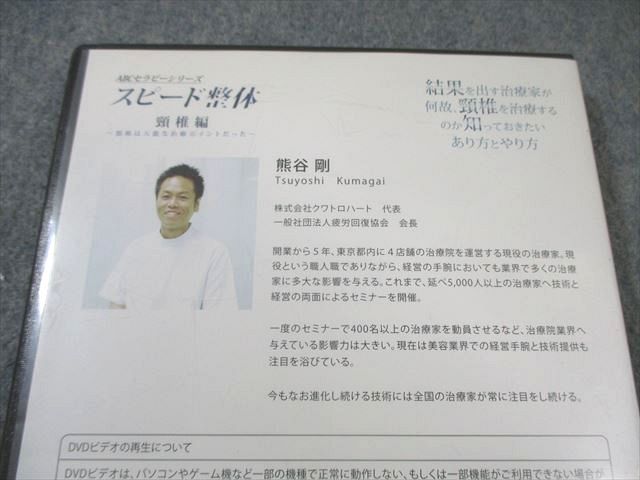 ABCセラピーシリーズ
スピード整体
頸椎編
〜頸椎は万能な治療ポイントだった〜
結果を出す治療家が
何故、頸椎を治療する
のか知っておきたい
あり方とやり方
熊谷 剛
Tsuyoshi Kumagai
株式会社クワトロハート 代表
一般社団法人疲労回復協会 会長
開業から５年、東京都内に４店舗の治療院を運営する現役の治療家。現
役という職人職でありながら、経営の手腕においても業界で多くの治療
家に多大な影響を与える。これまで、延べ5,000人以上の治療家へ技術と
経営の両面によるセミナーを開催。
一度のセミナーで400名以上の治療家を動員させるなど、治療院業界へ
与えている影響力は大きい。現在は美容業界での経営手腕と技術提供も
注目を浴びている。
今もなお進化し続ける技術には全国の治療家が常に注目をし続ける。
DVDビデオの再生について
DVDビデオは、パソコンやゲーム機など一部の機種で正常に動作しない、もしくは一部機能がご利用できない場合が